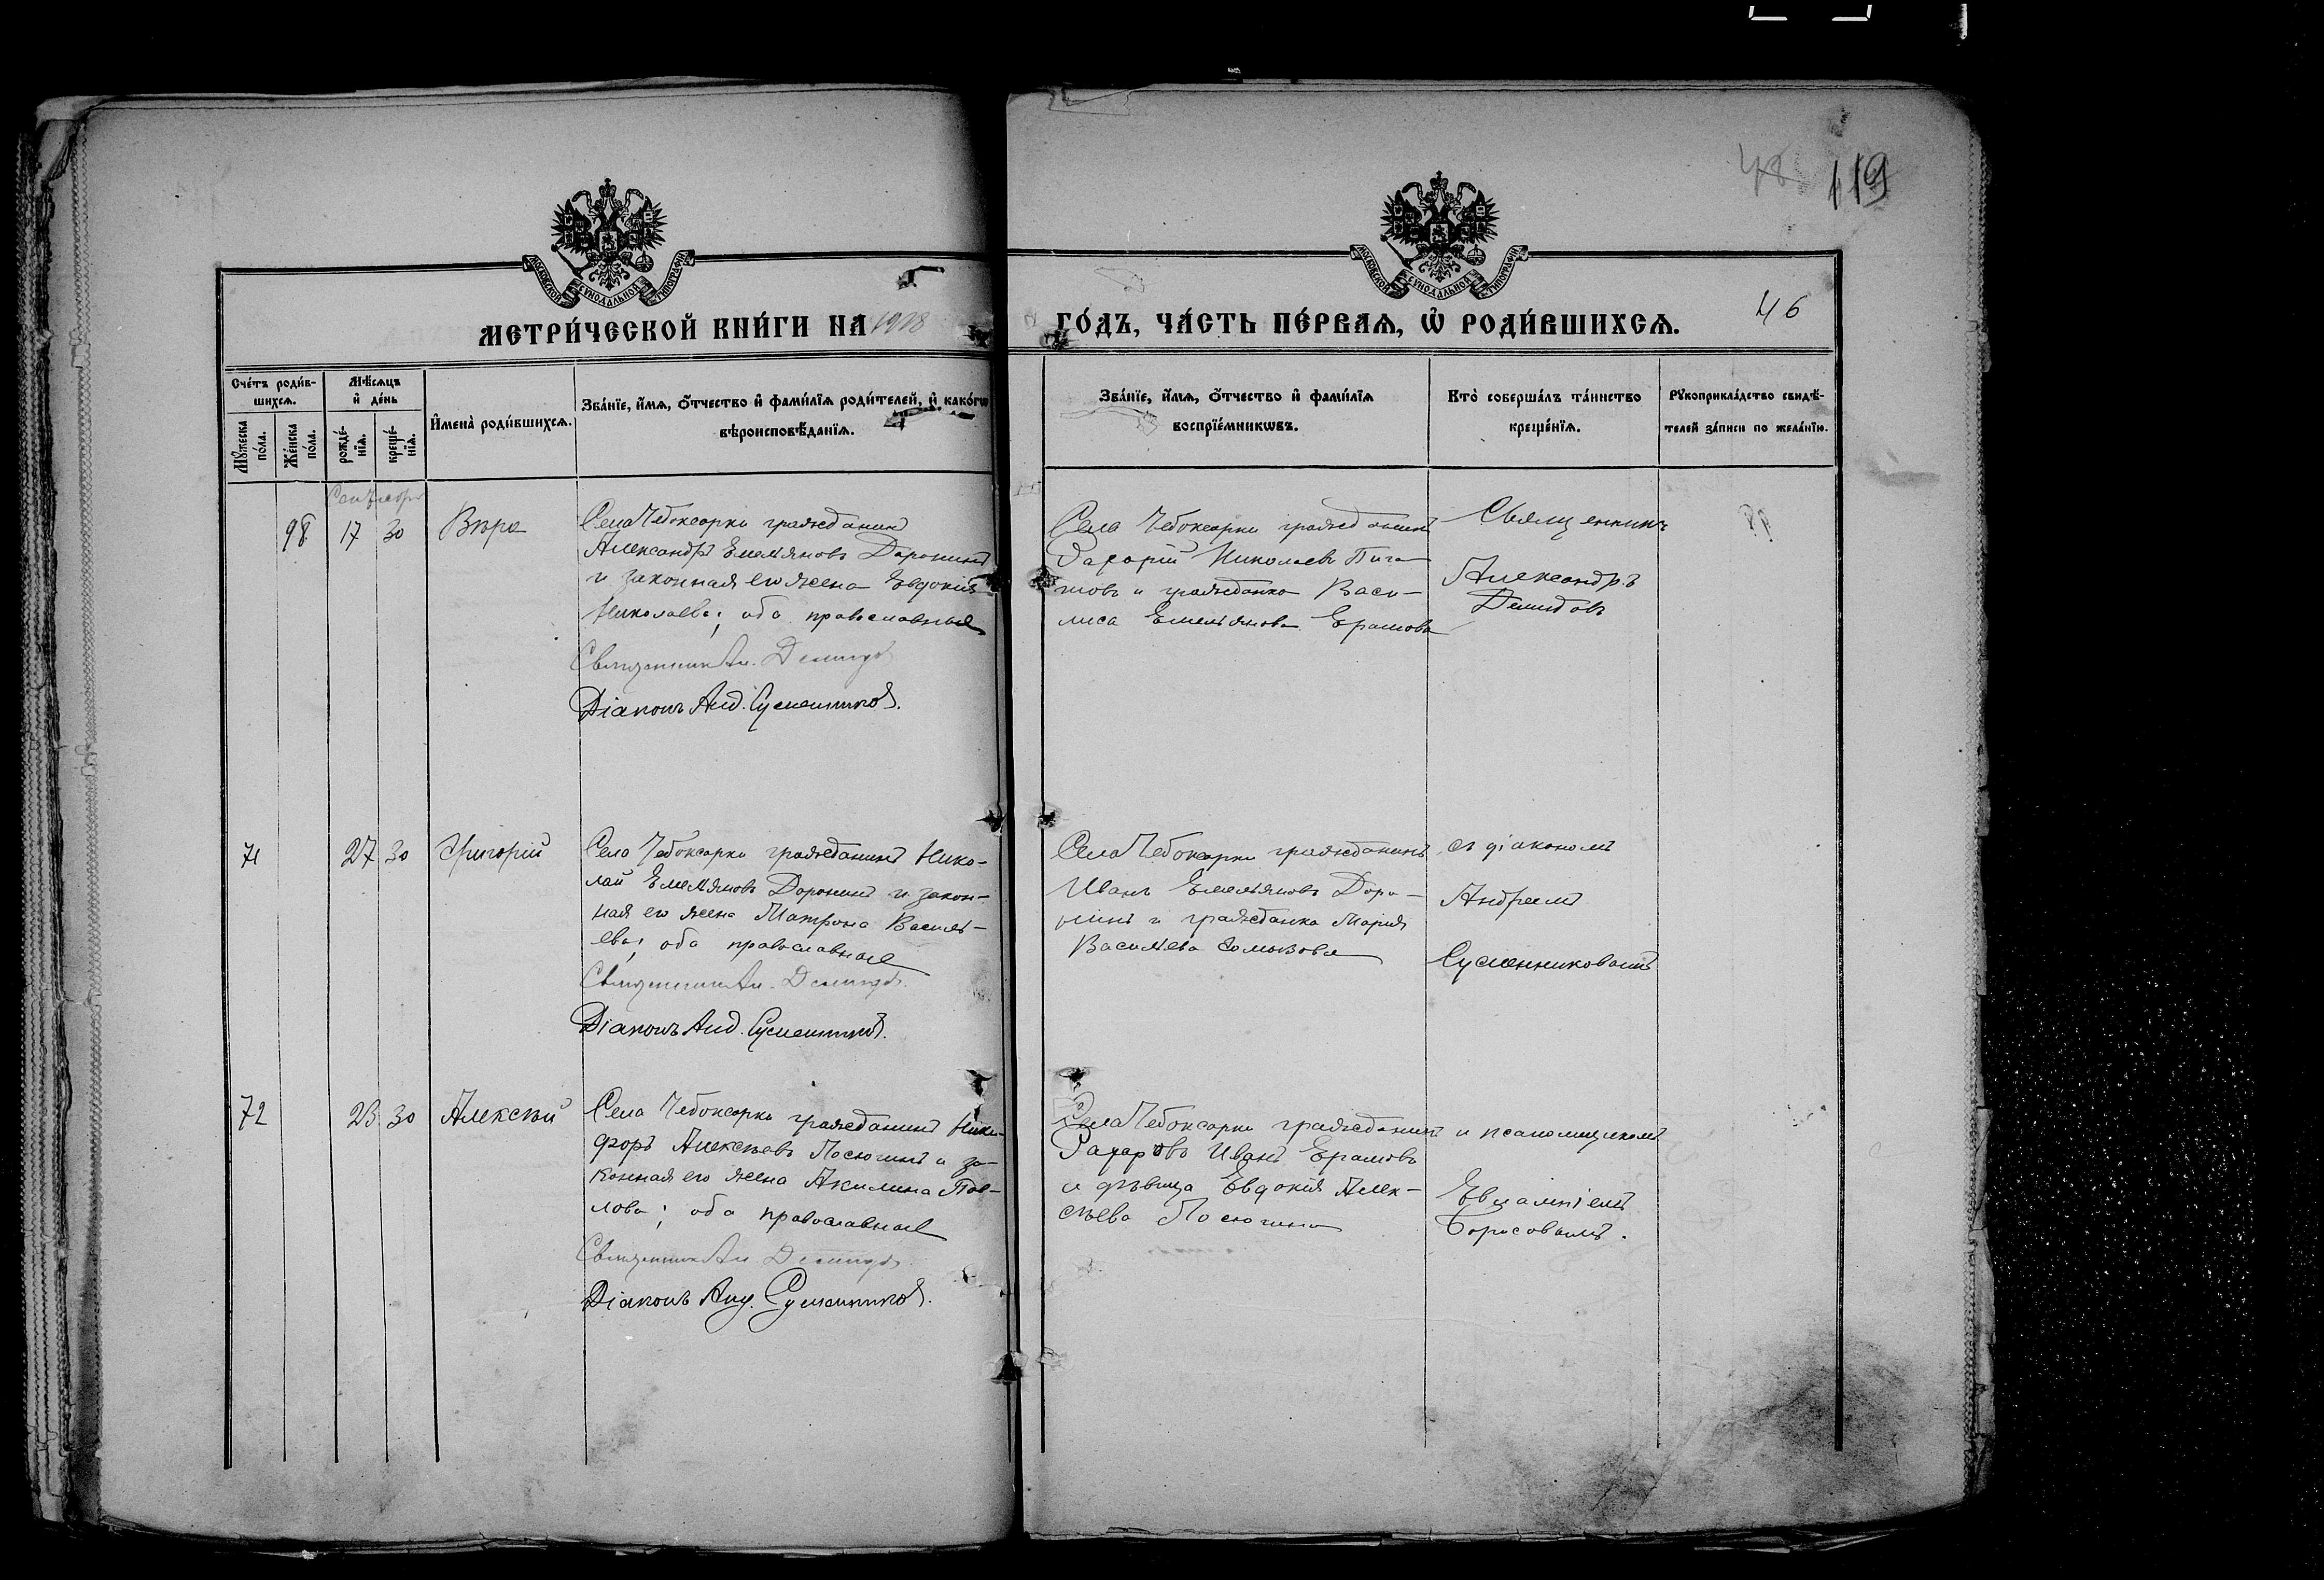 48 119
МОСКОВСКОЙ СУНОДАЛЬНОЙ ТИПОГРАФІИ
МОСКОВСКОЙ СУНОДАЛЬНОЙ ТИПОГРАФІИ
МЕТРИ́ЧЕСКОЙ КНИ́ГИ НА 1918
ГО́ДЪ, ЧА́СТЬ ПЕ́РВАѦ, Ѡ҆ РОДИ́ВШИХСѦ. 46
Сче́тъ роди́в-
шихсѧ.
Мꙋ́жеска
по́ла.
Же́нска
по́ла.
Мѣ́сѧцъ
и҆ де́нь
рожде́-
нїѧ.
креще́-
нїѧ.
И҆мена̀ роди́вшихсѧ.
Зва́нїе, и҆́мѧ, ѻ҆́тчество и҆ фами́лїѧ роди́телей, и҆ како́гѡ
вѣроисповѣ́данїѧ.
Зва́нїе, и҆́мѧ, ѻ҆́тчество и҆ фами́лїѧ
воспрїе́мникѡвъ.
Кто̀ соверша́лъ та́инство
креще́нїѧ.
Рꙋкоприкла́дство свидѣ́-
телей за́писи по жела́нїю.
Сентябрь
98 17 30 Вѣра
Села Чебоксарки гражданинъ
Александръ Емельяновъ Доронинъ
и законная его жена Евдокія
Николаева; оба православные
Священникъ Ал. Демидовъ
Діаконъ Анд. Сусленниковъ.
Села Чебоксарки гражданинъ
Захарій Николаевъ
и гражданка Васи-
лиса Емельянова Ерамова
Священникъ
Александръ
Демидовъ
71 27 30 Григорій
Села Чебоксарки гражданинъ Нико-
лай Емельяновъ Доронинъ и закон-
ная его жена Матрона Василь-
ева; оба православные
Священникъ Ал. Демидовъ.
Діаконъ Анд. Сусленниковъ.
Села Чебоксарки гражданинъ
Иванъ Емельяновъ Доро-
нинъ и гражданка Марія
Васильева
съ діакономъ
Андреемъ
Сусленниковымъ
72 23 30 Алексѣй
Села Чебоксарки гражданинъ Ники-
форъ Алексѣевъ Посюгинъ и за-
конная его жена Акилина Пав-
лова; оба православные
Священникъ Ал. Демидовъ.
Діаконъ Анд. Сусленниковъ.
Села Чебоксарки гражданинъ
Захаровъ Иванъ Ерамовъ
и дѣвица Евдокія Алек-
сѣева Посюгина
и псаломщикомъ
Евлампіемъ
Борисовымъ.